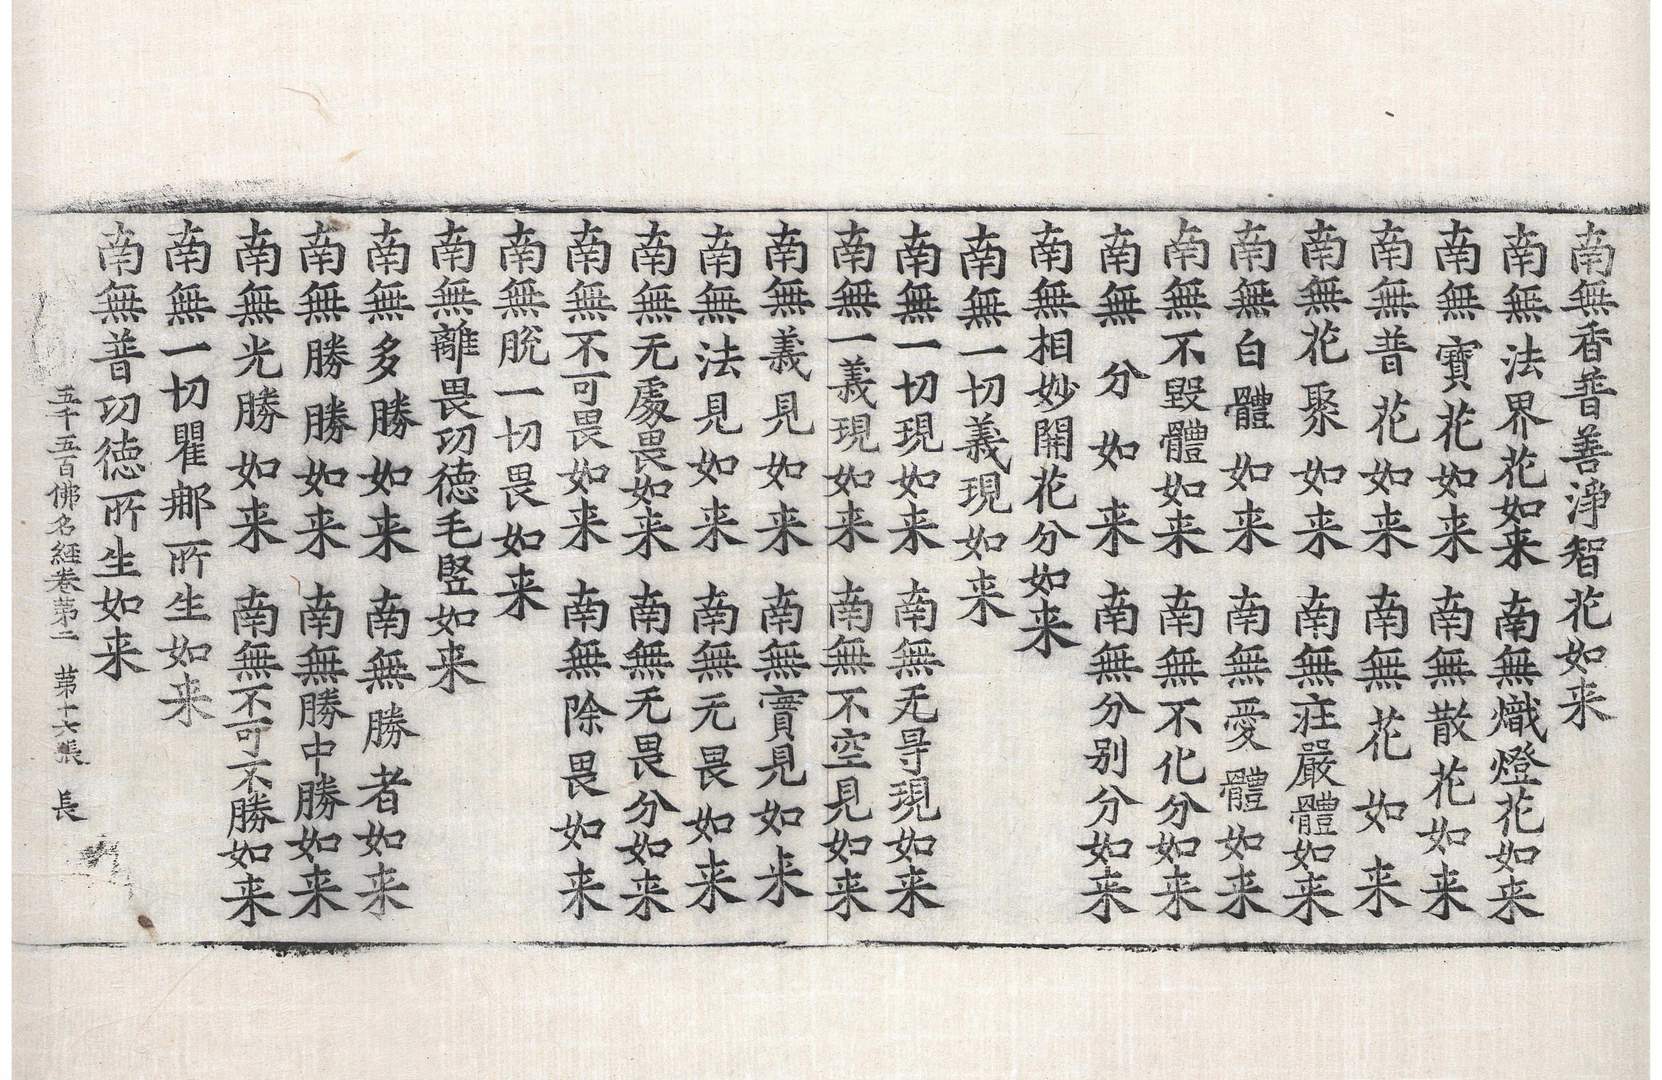 南無香普善淨智花如来
南無法界花如来 南無熾燈花如来
南無寶花如来 南無散花如来
南無普花如来 南無花如来
南無花聚如来 南無莊嚴體如来
南無白體如来 南無愛體如来
南無不毀體如来 南無不化分如来
南無分如来 南無分别分如来
南無相妙開花分如来
南無一切義現如来
南無一切現如来 南無无㝵現如来
南無一義現如来 南無不空見如来
南無義見如来 南無寶見如来
南無法見如来 南無无畏如来
南無无處畏如来 南無无畏分如来
南無不可畏如来 南無除畏如来
南無脫一切畏如来
南無離畏功徳毛竪如来
南無多勝如来 南無勝者如来
南無勝勝如来 南無勝中勝如来
南無光勝如来 南無不可不勝如来
南無一切瞿所生如来
南無普功徳所生如来
五千五百佛名經卷第二 第十六張 長